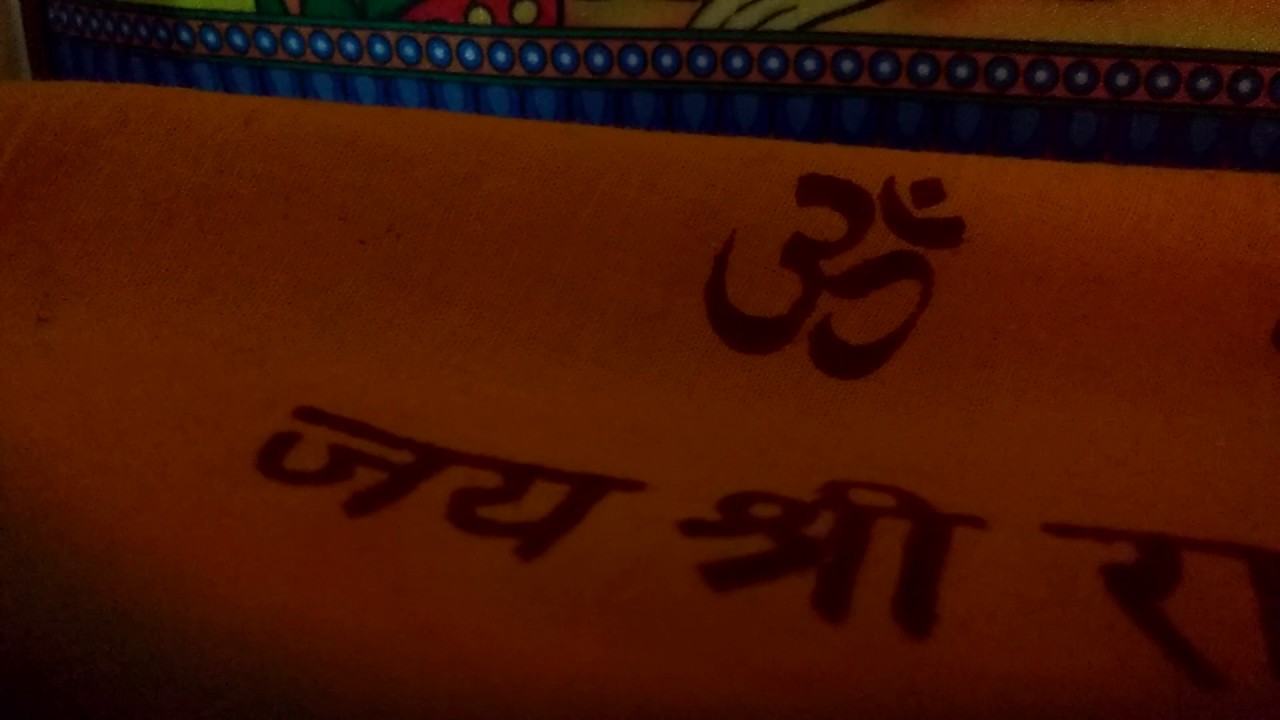 ॐ
जय श्री रा